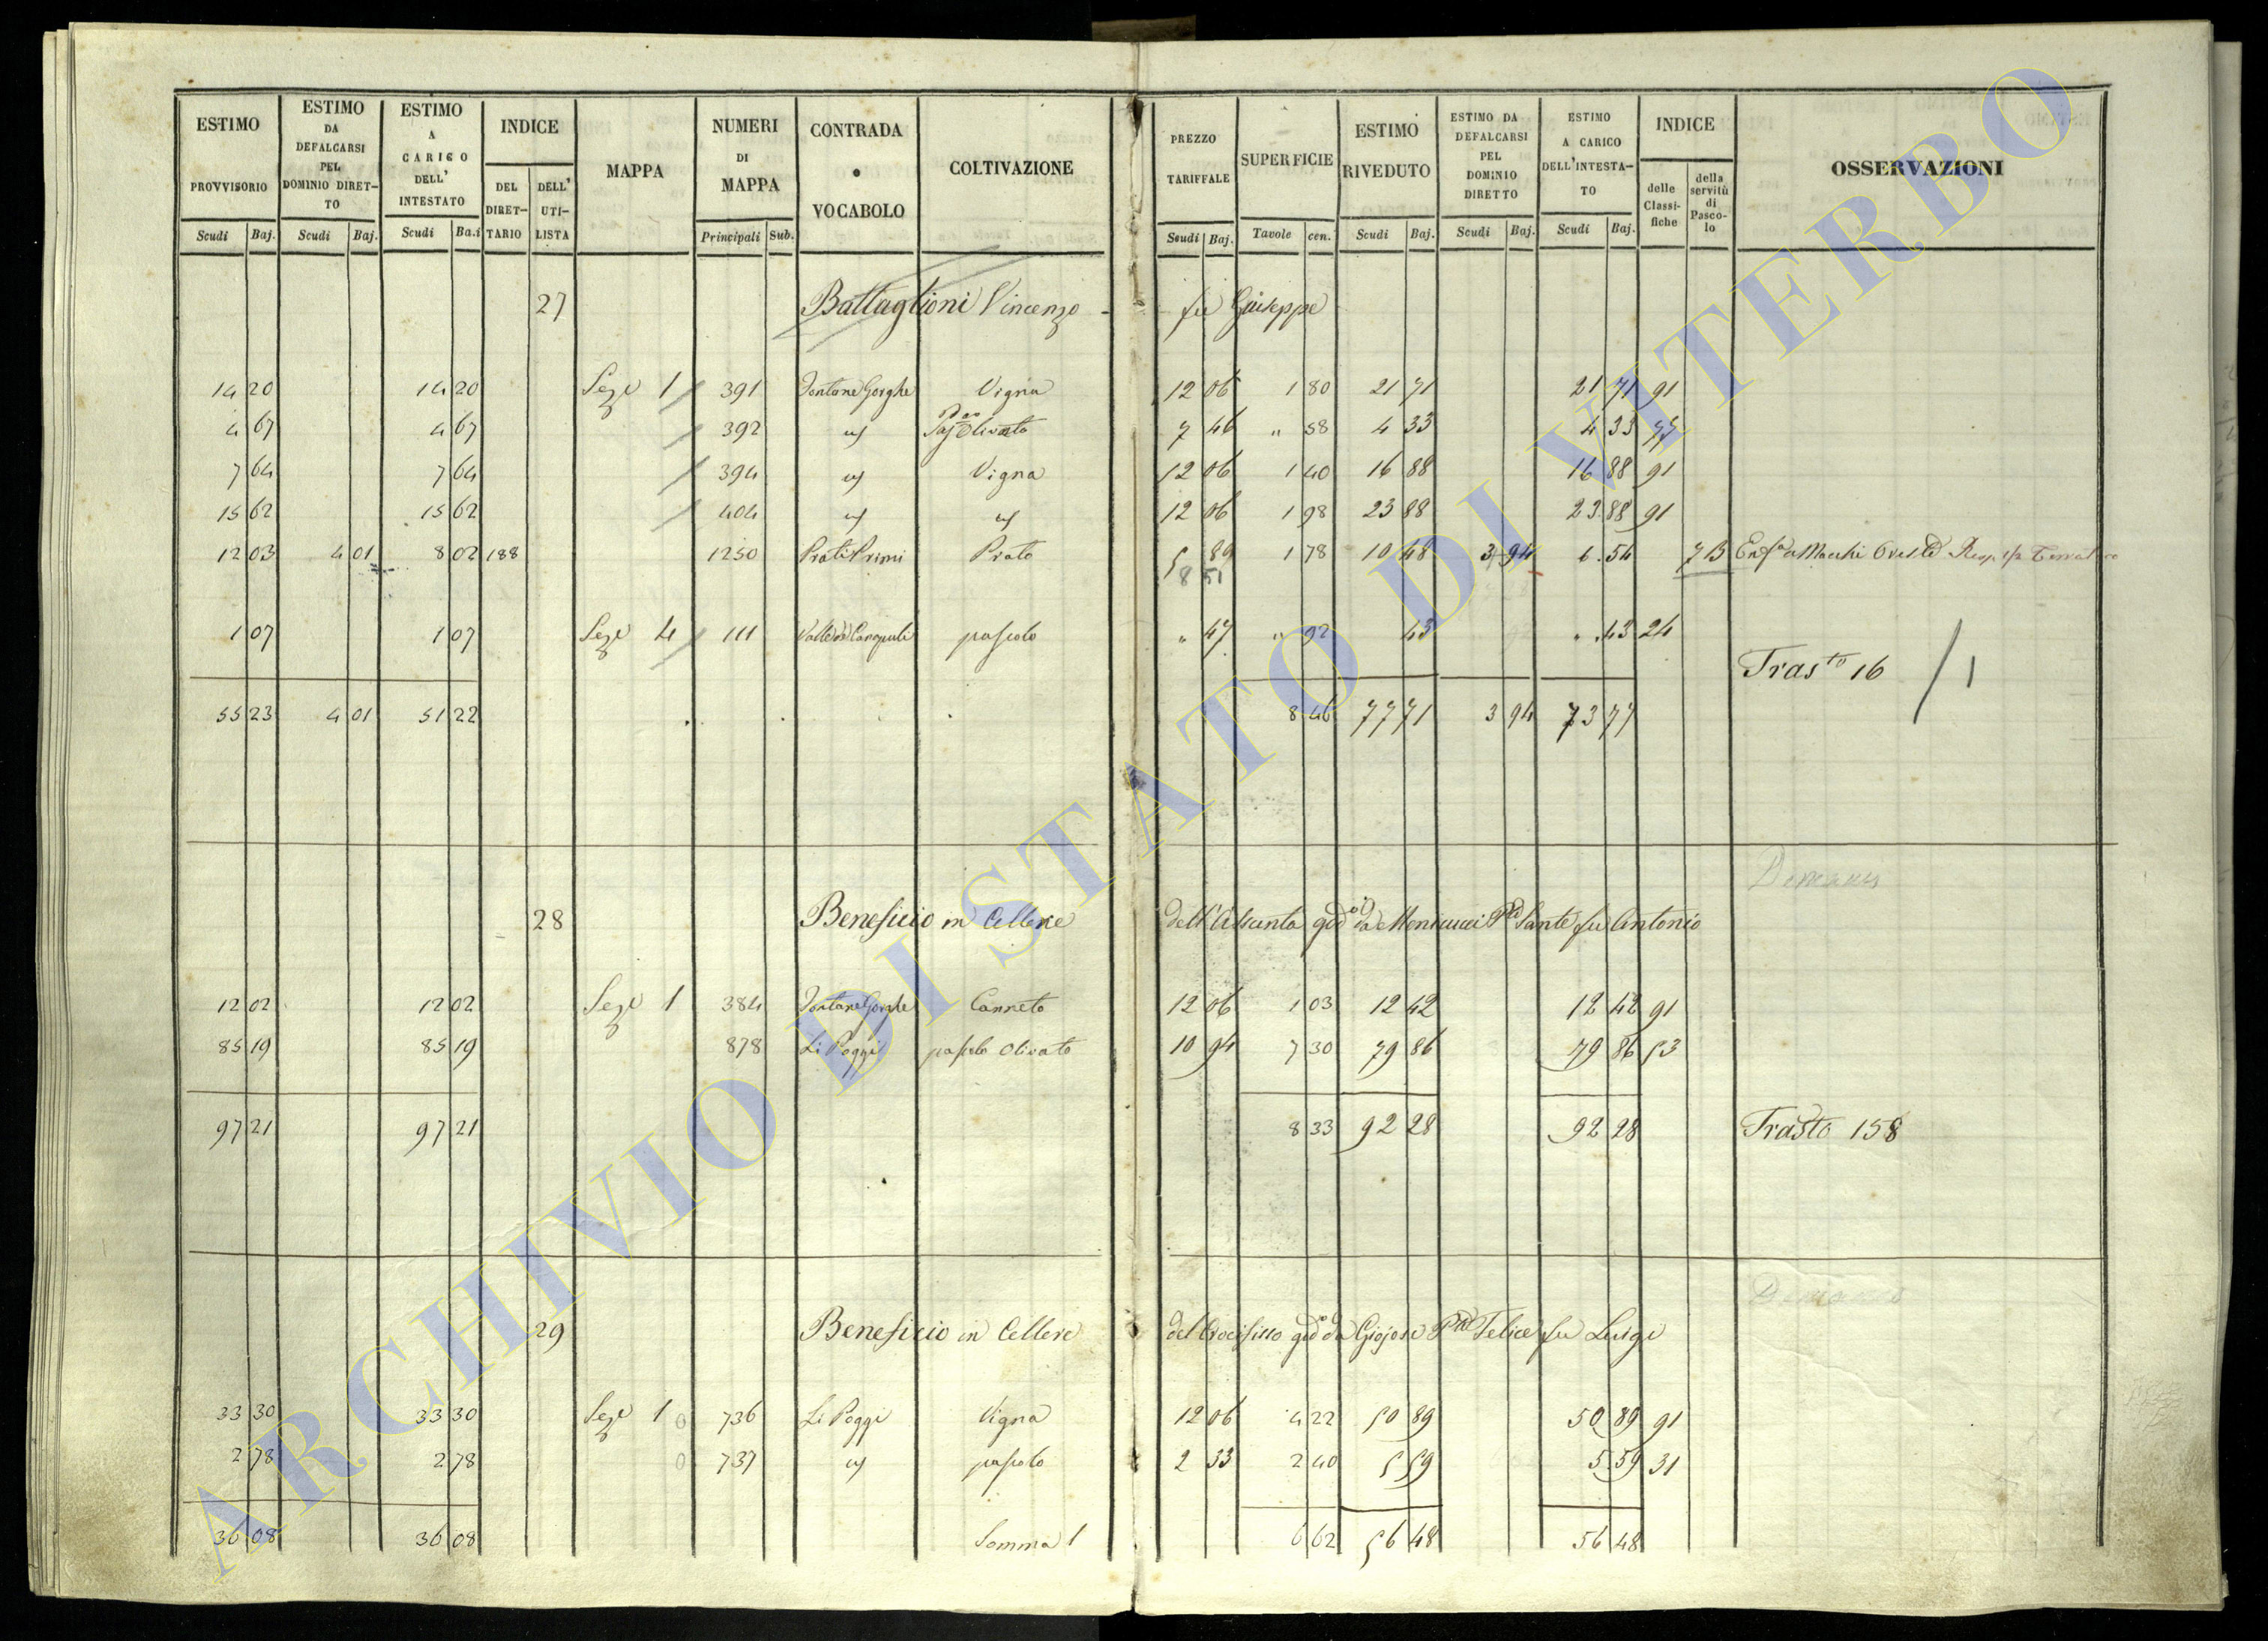 ESTIMO PROVVISORIO | ESTIMO DA DEFALCARSI PEL DOMINIO DIRET-TO | ESTIMO A CARICO DELL' INTESTATO | INDICE | MAPPA | NUMERI DI MAPPA | CONTRADA o VOCABOLO | COLTIVAZIONE | PREZZO TARIFFALE | SUPERFICIE | ESTIMO RIVEDUTO | ESTIMO DA DEFALCARSI PEL DOMINIO DIRETTO | ESTIMO A CARICO DELL'INTESTA-TO | INDICE | OSSERVAZIONI
DEL DIRET-TARIO | DELL' UTI-LISTA | delle Classi-fiche | della servitù di Pasco-lo
Scudi | Baj. | Scudi | Baj. | Scudi | Ba.i | Principali | Sub. | Scudi | Baj. | Tavole | cen. | Scudi | Baj. | Scudi | Baj. | Scudi | Baj.
27 Battaglioni Vincenzo - fu Giuseppe
14 20 | 14 20 | Seze 1 | 391 | Fontane Gorghe | Vigna | 12 06 | 1 80 | 21 71 | 21 71 | 91
4 67 | 4 67 | 392 | Olivato | 7 46 | " 58 | 4 33 | 4 33 | 77
7 64 | 7 64 | 394 | Vigna | 12 06 | 1 40 | 16 88 | 16 88 | 91
15 62 | 15 62 | 404 | 12 06 | 1 98 | 23 88 | 23 88 | 91
12 03 | 4 01 | 8 02 | 188 | 1250 | Prati Primi | Prato | 5 89 | 1 78 | 10 48 | 3 94 | 6.54 | 7B | Enfa a Macchi
8 51
1 07 | 1 07 | Seze 4 | 111 | pascolo | " 47 | " 92 | 43 | " .43 | 24
Trasto 16 / 1
55 23 | 4 01 | 51 22 | 8 46 | 77 71 | 3 94 | 73 77
28 Beneficio in Cellere dell'Assunta god.o da Monicucci Sante fu Antonio
12 02 | 12 02 | Seze 1 | 384 | Fontane Gorghe | Canneto | 12 06 | 1 03 | 12 42 | 12 42 | 91
85 19 | 85 19 | 878 | Li Poggi | pascolo Olivato | 10 94 | 7 30 | 79 86 | 79 86 | 53
97 21 | 97 21 | 8 33 | 92 28 | 92 28 | Trasto 158
29 Beneficio in Cellere del Crocifisso god.o da Giojosi Felice fu Luigi
33 30 | 33 30 | Seze 1 | 0 | 736 | Li Poggi | Vigna | 12 06 | 4 22 | 50 89 | 50 89 | 91
2 78 | 2 78 | 0 | 737 | pascolo | 2 33 | 2 40 | 5 59 | 5.59 | 31
36 08 | 36 08 | Somma 1 | 6 62 | 56 48 | 56 48
ARCHIVIO DI STATO DI VITERBO